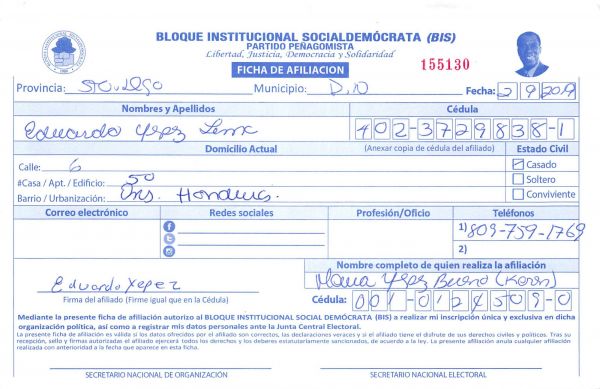 BLOQUE INSTITUCIONAL SOCIALDEMÓCRATA (BIS)
PARTIDO PEÑAGOMISTA
Libertad, Justicia, Democracia y Solidaridad
FICHA DE AFILIACION
155130
Provincia: Municipio: D,N Fecha: 2 9 2019
Nombres y Apellidos Cédula
Eduardo Yepez 402-3729838-1
Domicilio Actual (Anexar copia de cédula del afiliado) Estado Civil
Calle: 6 Casado
#Casa / Apt. / Edificio: 50 Soltero
Barrio / Urbanización: Ens. Honduras Conviviente
Correo electrónico Redes sociales Profesión/Oficio Teléfonos
1) 809-759-1769
2)
Nombre completo de quien realiza la afiliación
Eduardo Yepez Maria Yepez
Firma del afiliado (Firme igual que en la Cédula) Cédula: 001-0124509-0
Mediante la presente ficha de afiliación autorizo al BLOQUE INSTITUCIONAL SOCIAL DEMÓCRATA (BIS) a realizar mi inscripción única y exclusiva en dicha
organización política, así como a registrar mis datos personales ante la Junta Central Electoral.
La presente ficha de afiliación es valida si los datos ofrecidos por el afiliado son correctos, las declaraciones veraces y si el afiliado tiene el disfrute de sus derechos civiles y políticos. Tras su
recepción, sello y firmas autorizadas el afiliado ejercerá todos los derechos y los deberes estatutariamente sancionados, de acuerdo a la ley. La presente afiliación anula cualquier afiliación
realizada con anterioridad a la fecha que aparece en esta ficha.
SECRETARIO NACIONAL DE ORGANIZACIÓN SECRETARIO NACIONAL ELECTORAL